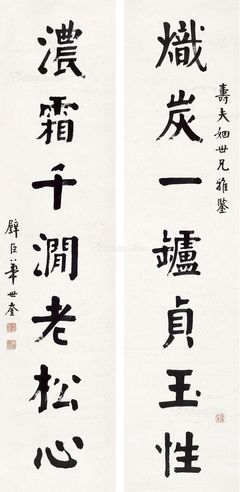 壽夫姻世兄雅鑒
熾炭一罏貞玉性
濃霜千澗老松心
璧臣華世奎